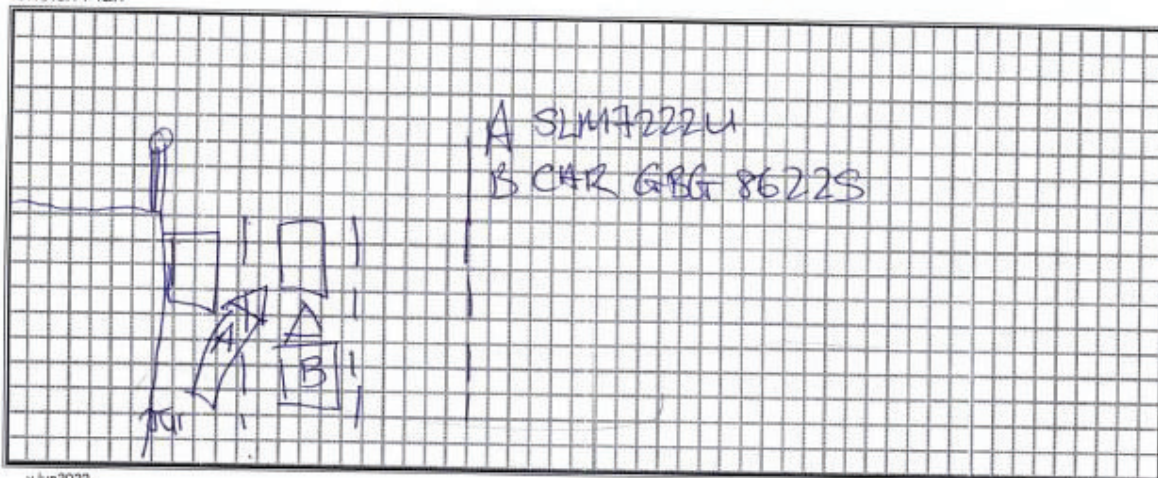 A SLM7222U
B CAR GBG 8622S
A
B